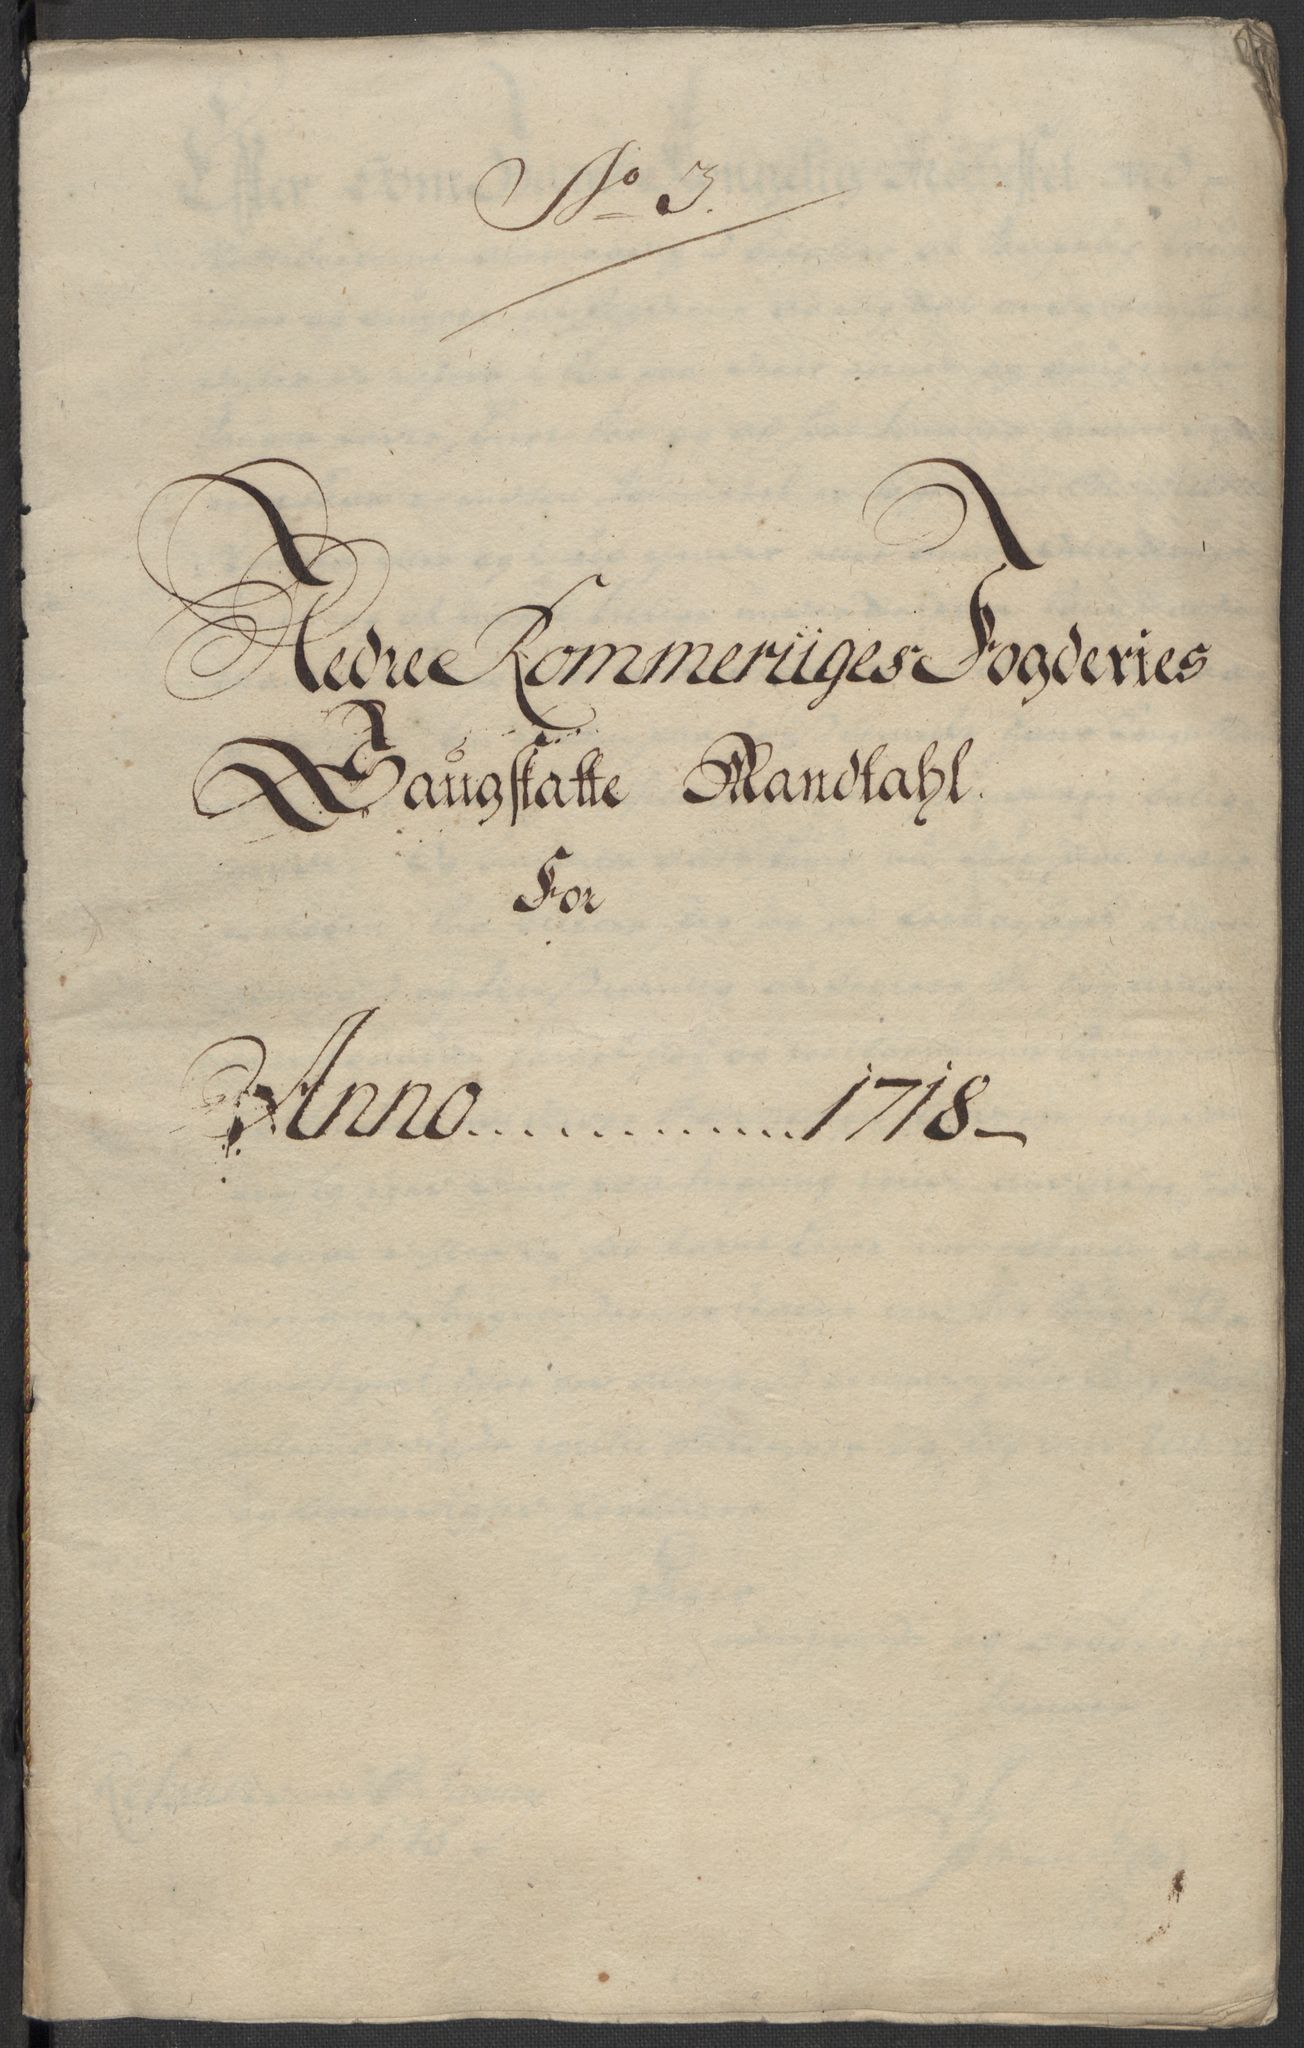 No 3.
Nedre Rommeriiges Fogderies
Saugskatte Mandtahl.
For
Anno ............ 1718